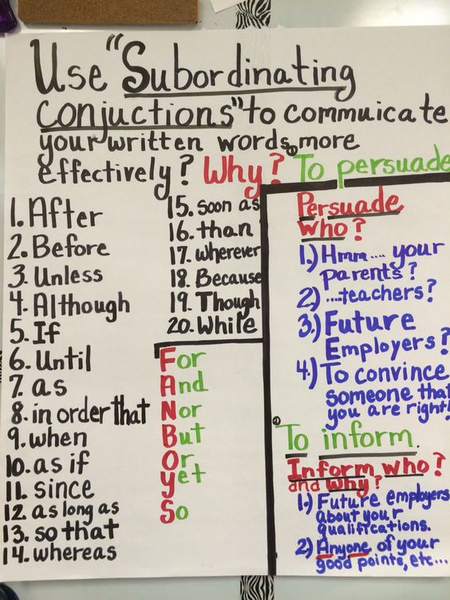 Use "Subordinating
conjuctions" to commuicate
your written words more
effectively? Why? ① To persuade
1. After
2. Before
3. Unless
4. Although
5. If
6. Until
7. as
8. in order that
9. when
10. as if
11. since
12 as long as
13. so that
14. whereas
15. soon as
16. than
17. wherever
18. Because
19. Though
20. While
For
And
Nor
But
Or
yet
So
Persuade
who?
1.) Hmm.... your
parents?
2) ...teachers?
3.) Future
Employers?
4.) To convince
someone that
you are right!
② To inform.
Inform who?
and Why?
1.) Future employers
about your
qualifications.
2) Anyone of your
good points, etc...